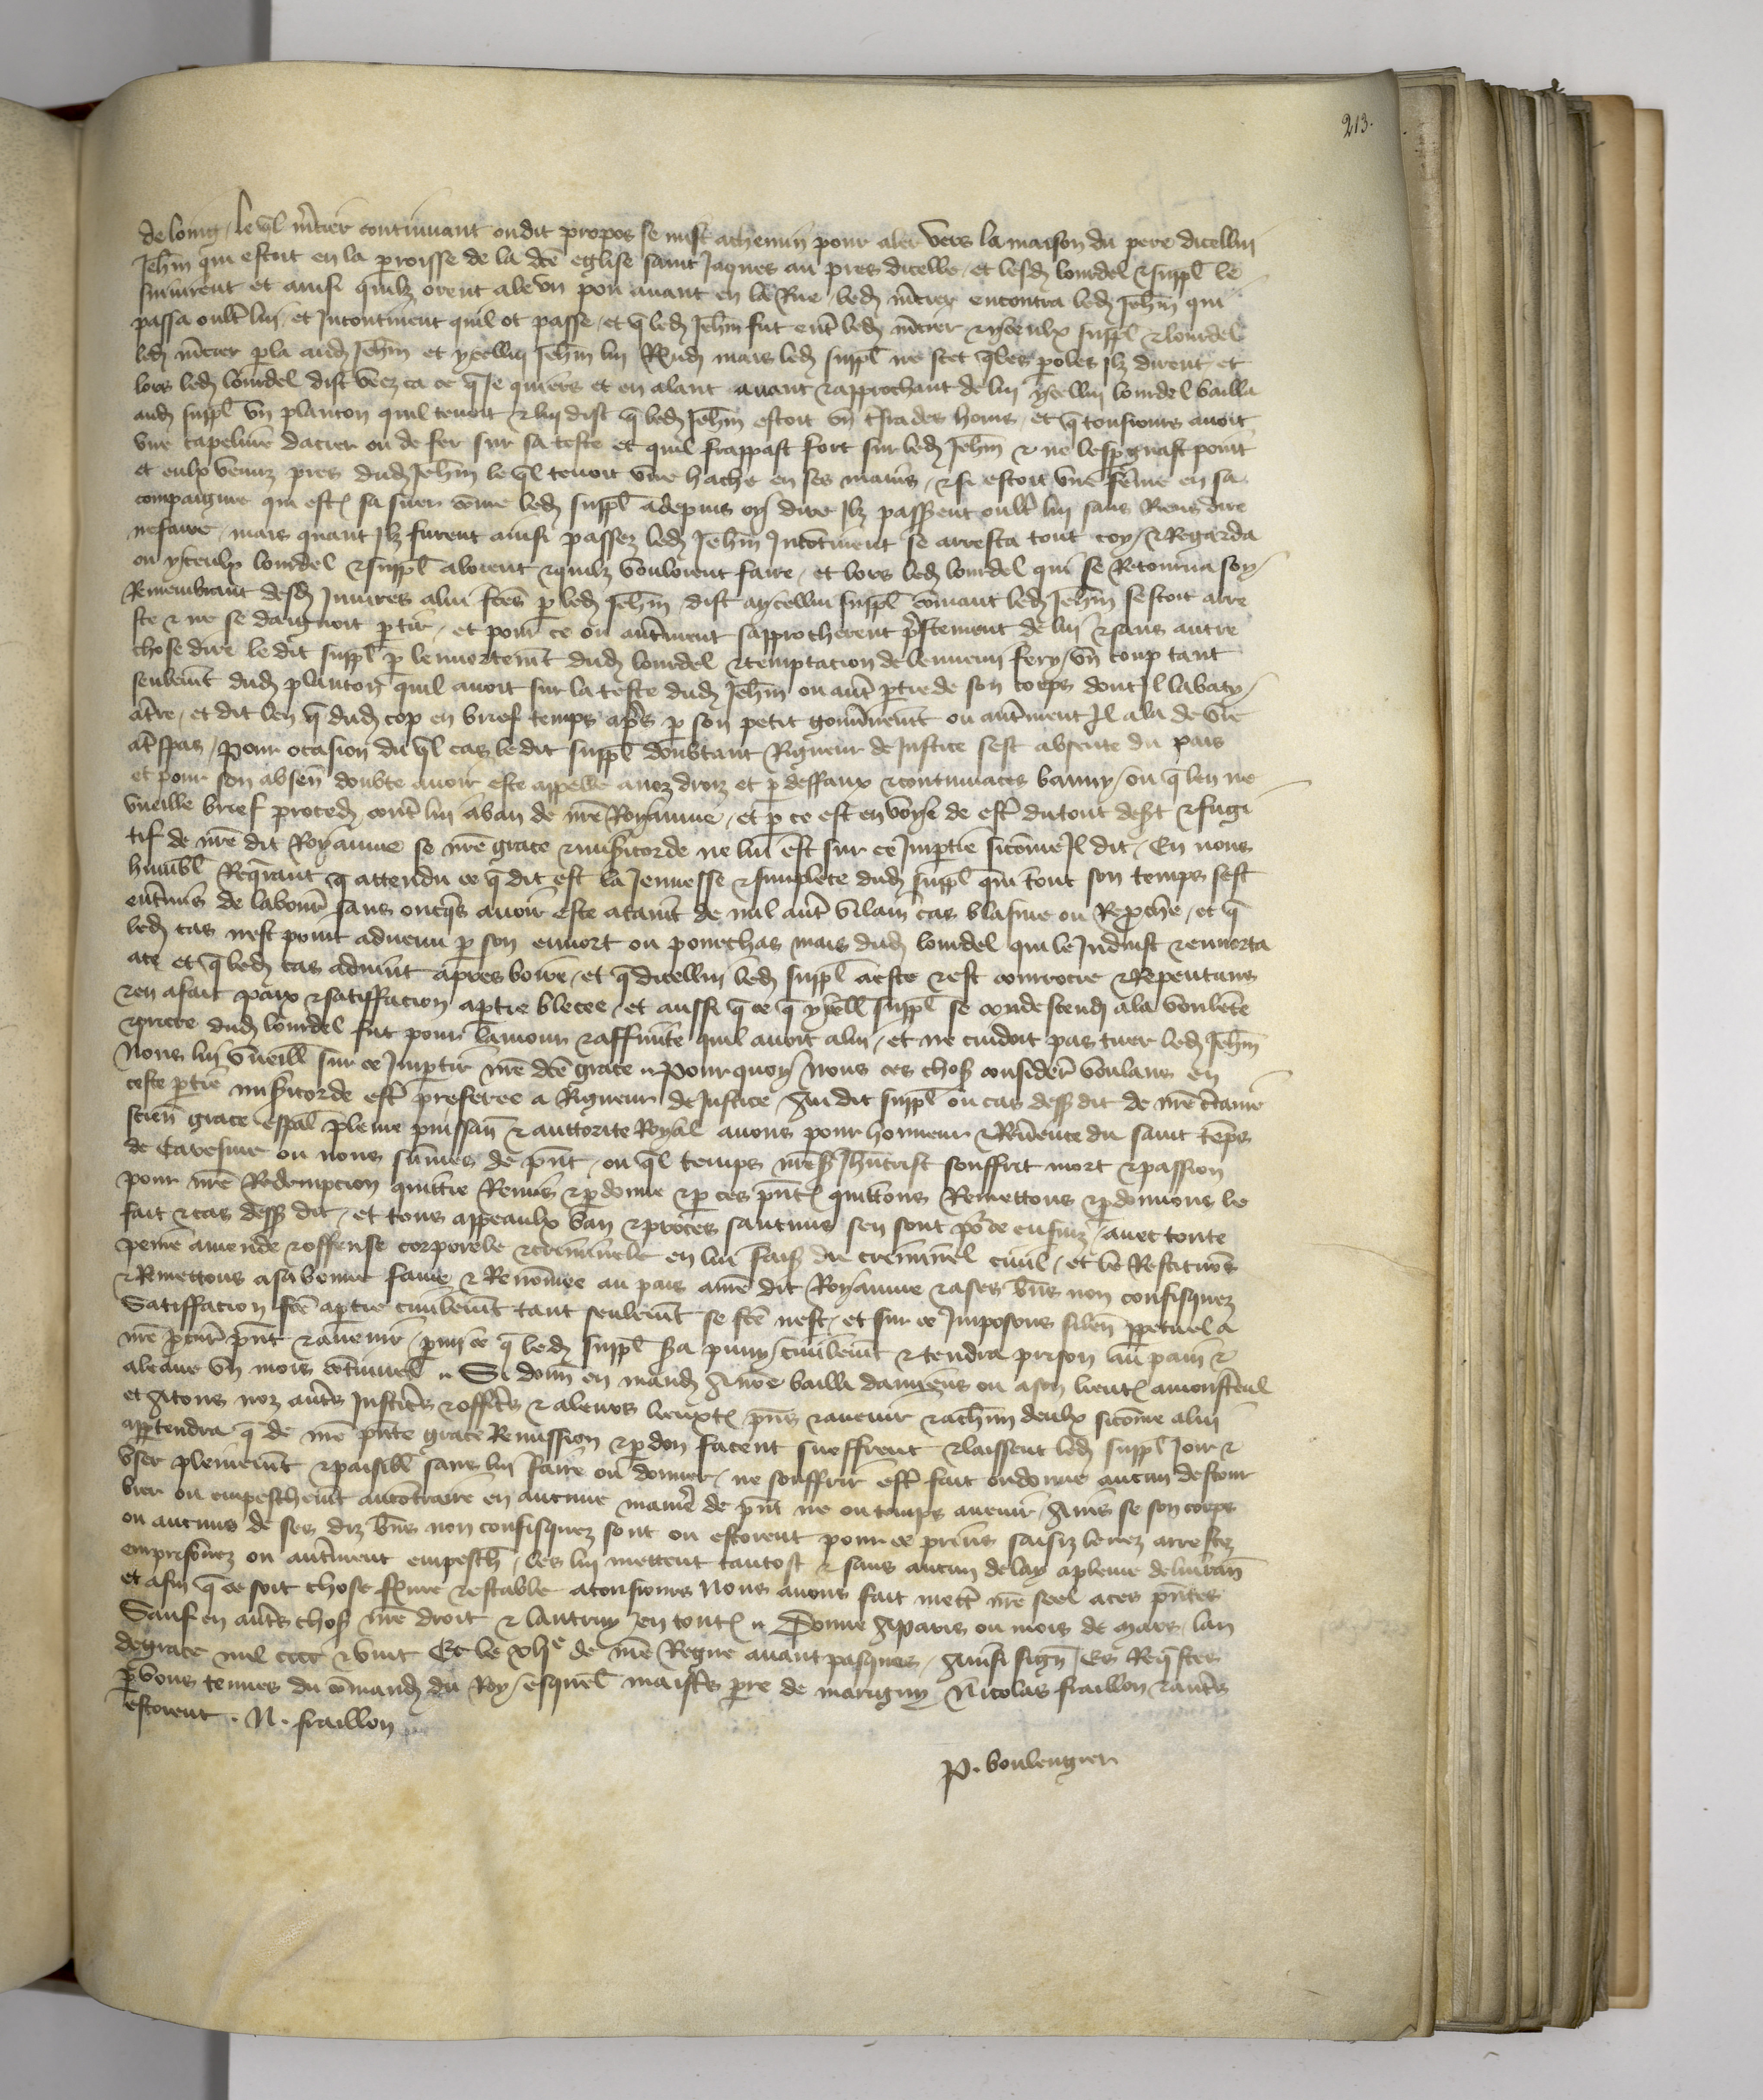 213.
de loing / le q̃l m̃cier continuant oudit propos se mist achemin pour aler vers la maison du pere dicellui
Jeh̃n qui estoit en la ꝑroisse de la dc̃e eglise saint Jaques au pres dicelle / et lesd̃ lourdel ⁊ suppl̃ le
suiuirent et ainsi quilz orent ale vn pou auant en la Rue / led̃ m̃cier encontra led̃ Jeh̃n qui
passa oult̃ lui / et Incontinent quil ot passe / et q̃ led̃ Jeh̃n fut ent̃ led̃ m̃cier ⁊ yceulx suppl̃ ⁊ lourdel
led̃ m̃cier ꝑla aud̃ Jeh̃n et ycellui Jeh̃n lui Rñd̃ mais led̃ suppl̃ ne scet q̃les ꝑoles Ilz dirent / et
lors led̃ lourdel dist veez ca ce q̃ Je quiers et en alant auant ⁊ approchant de lui ycellui lourdel bailla
aud̃ suppl̃ vn plancon quil tenoit ⁊ lui dist q̃ led̃ Jeh̃n estoit vn des homs / et q̃ tousiours auoit
vne capeline dacier ou de fer sur sa teste et quil frappast fort sur led̃ Jeh̃n ⁊ ne lespgnast point
et eulx venuz pres dud̃ Jeh̃n le q̃l tenoit vne hache en ses mains / ⁊ si estoit vne fẽme en sa
compaignie qui est̃ sa suer cõme led̃ suppl̃ a depuis oy dire Ilz passerent oult̃ lui sans Riens dire
ne faire / mais quant Ilz furent ainsi passez led̃ Jeh̃n Incõtinent se arresta tout coy / ⁊ Regarda
ou yceulx lourdel ⁊ suppl̃ aloient ⁊ quilz vouloient faire / et lors led̃ lourdel qui se Retourna soy
Remembrant desd̃ Iniures a lui fc̃es ꝑ led̃ Jeh̃n / dist a ycellui suppl̃ cõmant led̃ Jeh̃n sestoit arre
ste ⁊ ne se daignoit ꝑtir / et pour ce ou autrement sapprocherent p̃stement de lui ⁊ sans autre
chose dire le dit suppl̃ ꝑ lennortem̃t dud̃ lourdel ⁊ temptacion de lennemi fery / vn coup tant
seulem̃t dud̃ plancon quil auoit sur la teste dud̃ Jeh̃n ou aut̃ ꝑtie de son corps dont Il labaty
a t̃re / et dit len q̃ dud̃ cop en brief temps ap̃s ꝑ son petit gouũnem̃t ou aut̃ment Il ala de vie
a t̃spas / Pour ocasion du q̃l cas le dit suppl̃ doubtant Rigueur de Justice sest absente du pais
et pour son absen̄ doubte auoir este appelle a noz droiz et ꝑ deffaux ⁊ contumaces banny / ou q̃ len ne
vueille brief proced̃ cont̃ lui a ban de nr̃e Royaume / et ꝑ ce est en voye de est̃ du tout ⁊ fugi
tif de nr̃e dit Royaume se nr̃e grace ⁊ misicorde ne lui est sur ce Impartie sicõme Il dit / En nous
humbl̃ Req̃rant q̃ attendu ce q̃ dit est la Jeunesse ⁊ simplece dud̃ suppl̃ qui tout son temps sest
ent̃mis de labour̃ sans oncq̃s auoir este ataint de nul aut̃ vilain cas blasme ou Reproche / et q̃
led̃ cas nest point aduenu ꝑ son ennort ou pourchas mais dud̃ lourdel qui le Induist ⁊ ennorta
a ce et q̃ led̃ cas aduint apres boire / et q̃ dicellui led̃ suppl̃ a este ⁊ est courrocie ⁊ Repentans
⁊ en a fait paix ⁊ satiffacion a ptie blecee / et aussi q̃ ce q̃ ycell̃ suppl̃ se condescend̃ a la voulente
dud̃ lourdel fut pour lamour ⁊ affinite quil auoit a lui / et ne cuidoit pas tuer led̃ Jeh̃n
Nous lui vueill̃ sur ce Impartir nr̃e dc̃e grace ꝟ Pour quoy Nous ces chos̃ considere voulans en
ceste ꝑtie misicorde est̃ preferee a Rigueur de Justice / Au dit suppl̃ ou cas dess̃ dit de nr̃e c̃taine
scien̄ grace esp̃al pleine puissan̄ ⁊ auctorite Royal auons pour honneur ⁊ Reũence du saint tẽps
de Caresme ou nous sũmes de p̃nt / ou q̃l temps nr̃es̃ Jhũcrist souffrit mort ⁊ passion
pour nr̃e Redempcion quittie Remis ⁊ ꝑdonne ⁊ ꝑ ces p̃nt̃ quittons Remettons ⁊ ꝑdonnons le
fait ⁊ cas dess̃ dit / et tous appeaulx ban ⁊ proces sancuns sen sont pour ce ensuiz / auec toute
peine amende ⁊ offense corporele ⁊ criminele en lui fais̃ du creminel ciuil / et le Restituõs
⁊ Remettons a sa bonne fame ⁊ Renõmee au pais a nr̃e dit Royaume ⁊ a ses bñs non confisquez
Satiffacion fc̃e a ptie ciuilem̃t tant seulem̃t se fc̃e nest / et sur ce Imposons silen̄ ꝑpetuel a
nr̃e procur̃ p̃nt ⁊ auenir / parmi ce q̃ led̃ suppl̃ s̃a puny / ciuilem̃t ⁊ tendra prison au pain ⁊
a leaue vn mois cõtinuel ꝟ Si donn̄ en mand̃ A nr̃e bailli damiens ou a son lieut̃ a monst̃eul
et A tous noz aut̃s Justic̃s ⁊ offic̃s ⁊ a leurs lieuxt̃ p̃ns ⁊ auenir ⁊ a ch̃un deulx sicõme a lui
appartendra q̃ de nr̃e p̃nte grace Remission ⁊ ꝑdon facent sueffrent ⁊ laissent led̃ suppl̃ Joir ⁊
vser pleinem̃t ⁊ paisibl̃ sans lui faire ou donner / ne souffrir est̃ fait ou donne aucun destour
bier ou empeschem̃t au contraire en aucune manie᷑ de p̃nt ne ou temps auenir / Ains se son corps
ou aucuns de ses diz bñs non confisquez sont ou estoient pour ce prins saisiz leuez arrestez
emprisõnez ou aut̃ment empesch̃ / les lui mettent tantost ⁊ sans aucun delay a pleine deliuran̄
et afin q̃ ce soit chose ferme ⁊ estable a tousiours Nous auons fait mett̃ nr̃e seel a ces p̃ntes
Sauf en aut̃s chos̃ nr̃e droit ⁊ lautruy en tout̃ ꝟ Donne A paris ou mois de mars / lan
de grace mil cccc ⁊ vint Et le xlje de nr̃e Regne auant pasques / Ainsi sign̄ / Es Req̃stes
ꝑ vous tenues du cõmand̃ du Roy / esquel̃ maist̃s pere de marigny / Nicolas fraillon ⁊ aut̃s
estoient . N . fraillon
P. boulengier